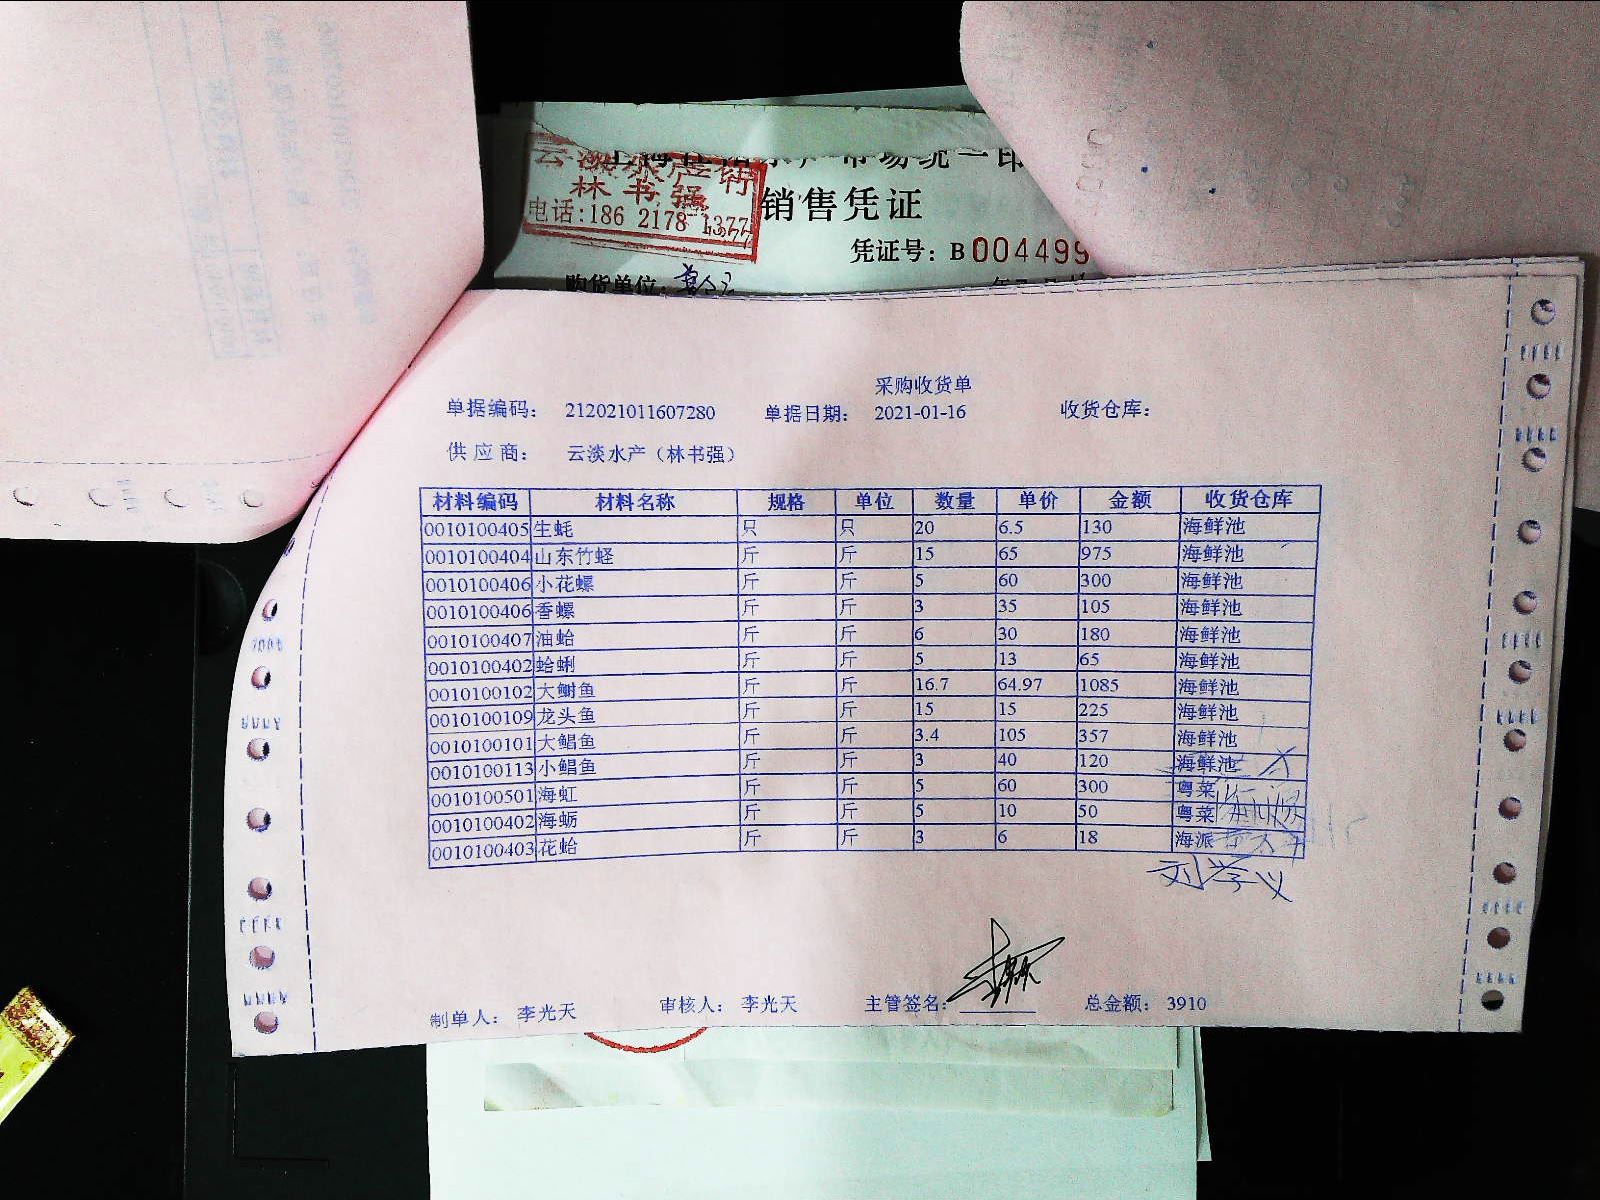 云淡水产行
林书强
电话:186 2178 1377
市场统一印
销售凭证
凭证号：B004499
购货单位：
采购收货单
单据编码： 212021011607280 单据日期： 2021-01-16 收货仓库：
供应商： 云淡水产（林书强）
材料编码 材料名称 规格 单位 数量 单价 金额 收货仓库
0010100405 生蚝 只 只 20 6.5 130 海鲜池
0010100404 山东竹蛏 斤 斤 15 65 975 海鲜池
0010100406 小花螺 斤 斤 5 60 300 海鲜池
0010100406 香螺 斤 斤 3 35 105 海鲜池
0010100407 油蛤 斤 斤 6 30 180 海鲜池
0010100402 蛤蜊 斤 斤 5 13 65 海鲜池
0010100102 大鲥鱼 斤 斤 16.7 64.97 1085 海鲜池
0010100109 龙头鱼 斤 斤 15 15 225 海鲜池
0010100101 大鲳鱼 斤 斤 3.4 105 357 海鲜池
0010100113 小鲳鱼 斤 斤 3 40 120 海鲜池
0010100501 海虹 斤 斤 5 60 300 粤菜
0010100402 海蛎 斤 斤 5 10 50 粤菜
0010100403 花蛤 斤 斤 3 6 18 海派
刘学义
制单人： 李光天 审核人： 李光天 主管签名： 总金额： 3910